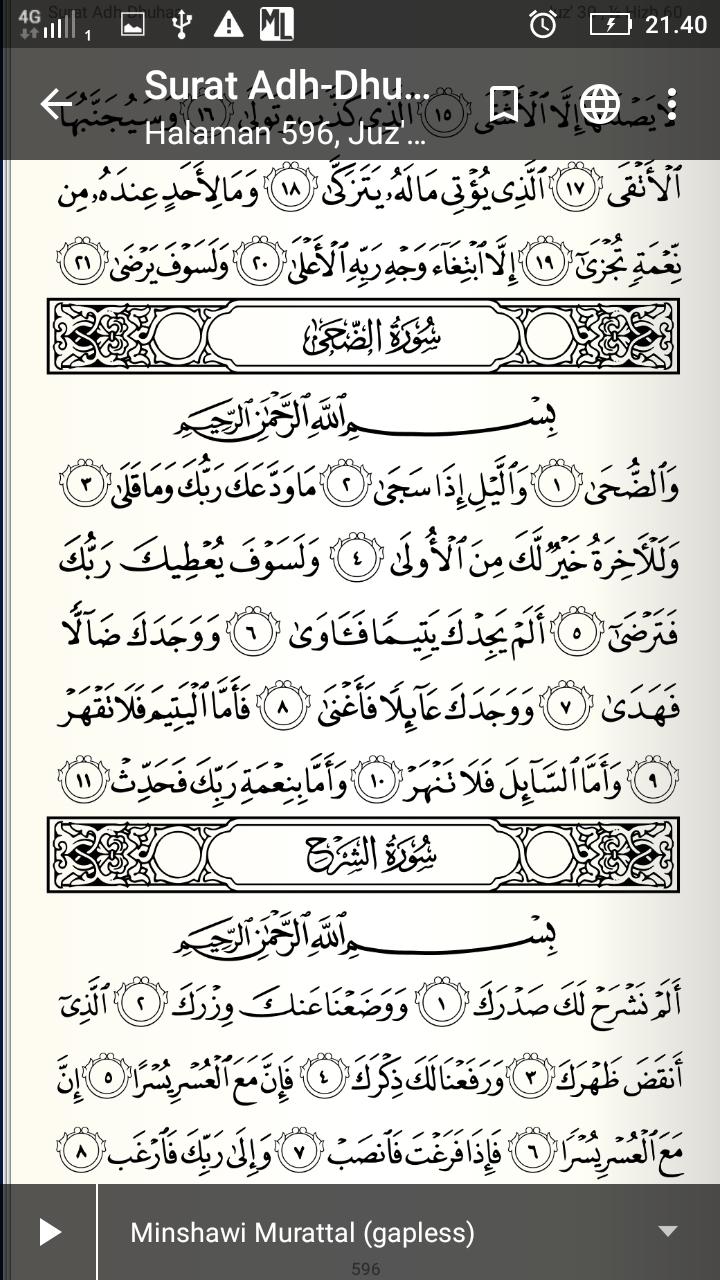 4G 1 ML 21.40
Surat Adh-Dhuhaa Juz' 30, ¾ Hizb 60
Surat Adh-Dhu...
Halaman 596, Juz'...
لَا يَصْلَىٰهَآ إِلَّا ٱلْأَشْقَى ١٥ ٱلَّذِى كَذَّبَ وَتَوَلَّىٰ ١٦ وَسَيُجَنَّبُهَا
ٱلْأَتْقَى ١٧ ٱلَّذِى يُؤْتِى مَالَهُۥ يَتَزَكَّىٰ ١٨ وَمَا لِأَحَدٍ عِندَهُۥ مِن
نِّعْمَةٍ تُجْزَىٰٓ ١٩ إِلَّا ٱبْتِغَآءَ وَجْهِ رَبِّهِ ٱلْأَعْلَىٰ ٢٠ وَلَسَوْفَ يَرْضَىٰ ٢١
سُورَةُ الضُّحَىٰ
بِسْمِ ٱللَّهِ ٱلرَّحْمَٰنِ ٱلرَّحِيمِ
وَٱلضُّحَىٰ ١ وَٱلَّيْلِ إِذَا سَجَىٰ ٢ مَا وَدَّعَكَ رَبُّكَ وَمَا قَلَىٰ ٣
وَلَلْأَخِرَةُ خَيْرٌ لَّكَ مِنَ ٱلْأُولَىٰ ٤ وَلَسَوْفَ يُعْطِيكَ رَبُّكَ
فَتَرْضَىٰٓ ٥ أَلَمْ يَجِدْكَ يَتِيمًا فَـَٔاوَىٰ ٦ وَوَجَدَكَ ضَآلًّا
فَهَدَىٰ ٧ وَوَجَدَكَ عَآئِلًا فَأَغْنَىٰ ٨ فَأَمَّا ٱلْيَتِيمَ فَلَا تَقْهَرْ
٩ وَأَمَّا ٱلسَّآئِلَ فَلَا تَنْهَرْ ١٠ وَأَمَّا بِنِعْمَةِ رَبِّكَ فَحَدِّثْ ١١
سُورَةُ الشَّرْحِ
بِسْمِ ٱللَّهِ ٱلرَّحْمَٰنِ ٱلرَّحِيمِ
أَلَمْ نَشْرَحْ لَكَ صَدْرَكَ ١ وَوَضَعْنَا عَنكَ وِزْرَكَ ٢ ٱلَّذِىٓ
أَنقَضَ ظَهْرَكَ ٣ وَرَفَعْنَا لَكَ ذِكْرَكَ ٤ فَإِنَّ مَعَ ٱلْعُسْرِ يُسْرًا ٥ إِنَّ
مَعَ ٱلْعُسْرِ يُسْرًا ٦ فَإِذَا فَرَغْتَ فَٱنصَبْ ٧ وَإِلَىٰ رَبِّكَ فَٱرْغَب ٨
Minshawi Murattal (gapless)
596